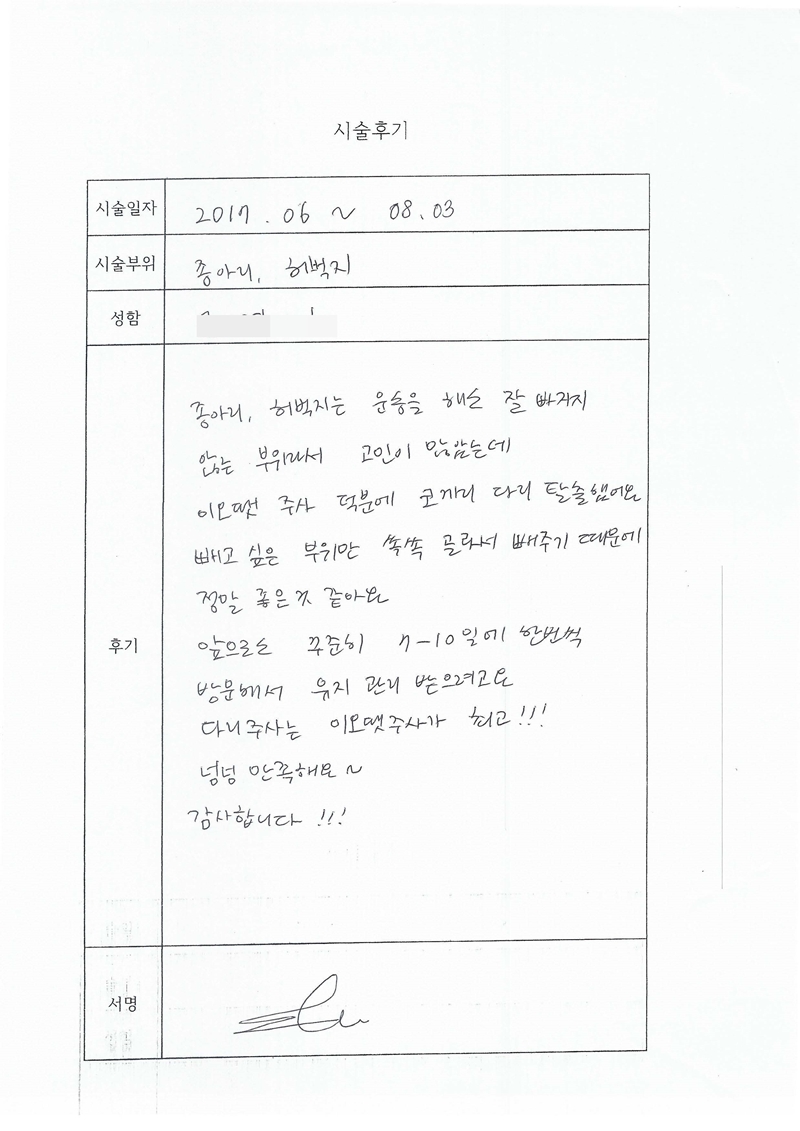 시술후기
시술일자 2017. 06 ~ 08.03
시술부위 종아리, 허벅지
성함
종아리, 허벅지는 운동을 해도 잘 빠지지
않는 부위라서 고민이 많았는데
이오땡 주사 덕분에 코끼리 다리 탈출했어요
빼고 싶은 부위만 쏙쏙 골라서 빼주기 때문에
정말 좋은것 같아요
후기 앞으로도 꾸준히 7-10일에 한번씩
방문해서 유지 관리 받으려고요
다리주사는 이오땡주사가 최고!!!
넘넘 만족해요~
감사합니다!!!
서명